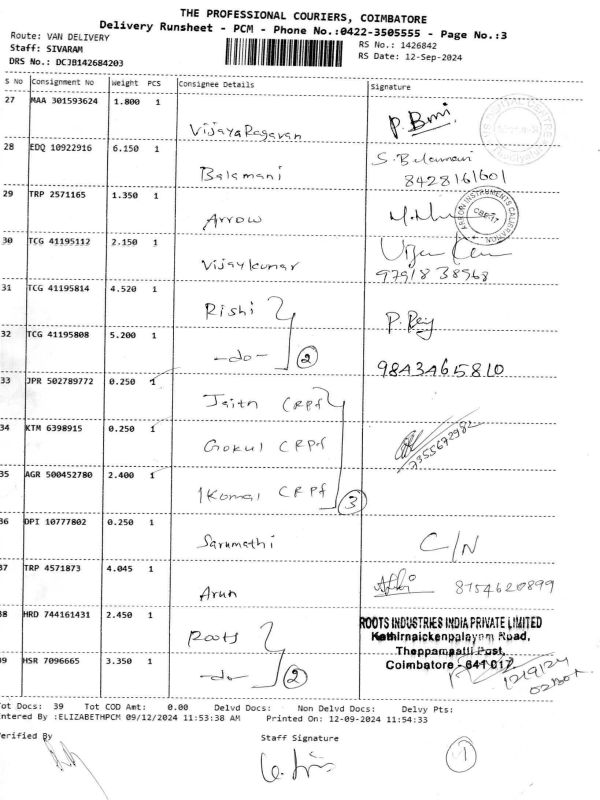 THE PROFESSIONAL COURIERS, COIMBATORE
Delivery Runsheet - PCM - Phone No.:0422-3505555 - Page No.:3
Route: VAN DELIVERY
Staff: SIVARAM RS No.: 1426842
DRS No.: DCJB142684203 RS Date: 12-Sep-2024
S No Consignment No Weight PCS Consignee Details Signature
27 MAA 301593624 1.800 1 VijayaRagavan
28 EDQ 10922916 6.150 1 Balamani 8428161601
29 TRP 2571165 1.350 1 Arrow
30 TCG 41195112 2.150 1 Vijaykumar 9791838568
31 TCG 41195814 4.520 1 Rishi
32 TCG 41195808 5.200 1 -do- 2 9843465810
33 JPR 502789772 0.250 1 CRPf
34 KTM 6398915 0.250 1 Gokul CRPf 7355672982
35 AGR 500452780 2.400 1 CRPf 3
36 DPI 10777802 0.250 1 Sarumathi C/N
37 TRP 4571873 4.045 1 Arun 8754620899
38 HRD 744161431 2.450 1 Roots ROOTS INDUSTRIES INDIA PRIVATE LIMITED
Kathirnaickenpalayam Road,
Thoppampatti Post,
39 HSR 7096665 3.350 1 -do- 2 Coimbatore - 641 017.
12/9/24
Tot Docs: 39 Tot COD Amt: 0.00 Delvd Docs: Non Delvd Docs: Delvy Pts:
Entered By :ELIZABETHPCM 09/12/2024 11:53:38 AM Printed On: 12-09-2024 11:54:33
Verified By Staff Signature
1